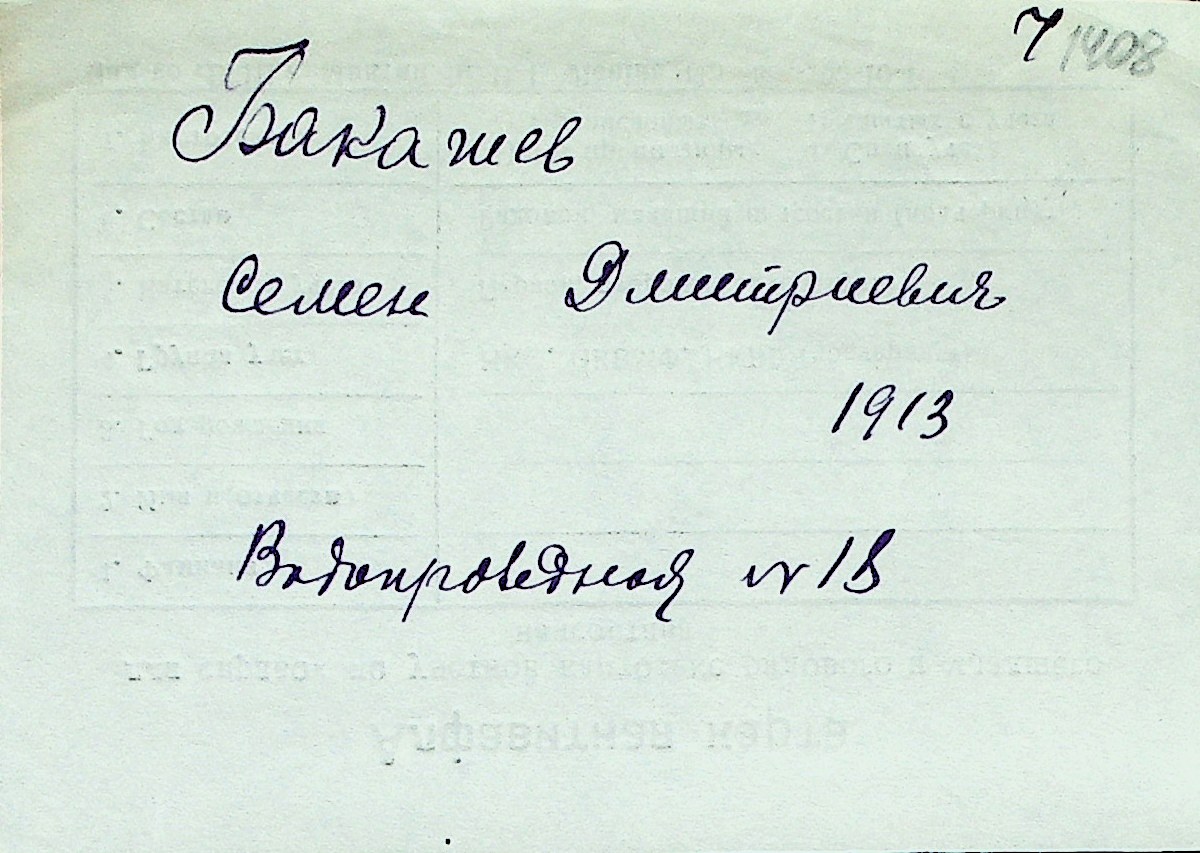 7 1408
Бакашев
Семен Дмитриевич
1913
Водопроводная № 18